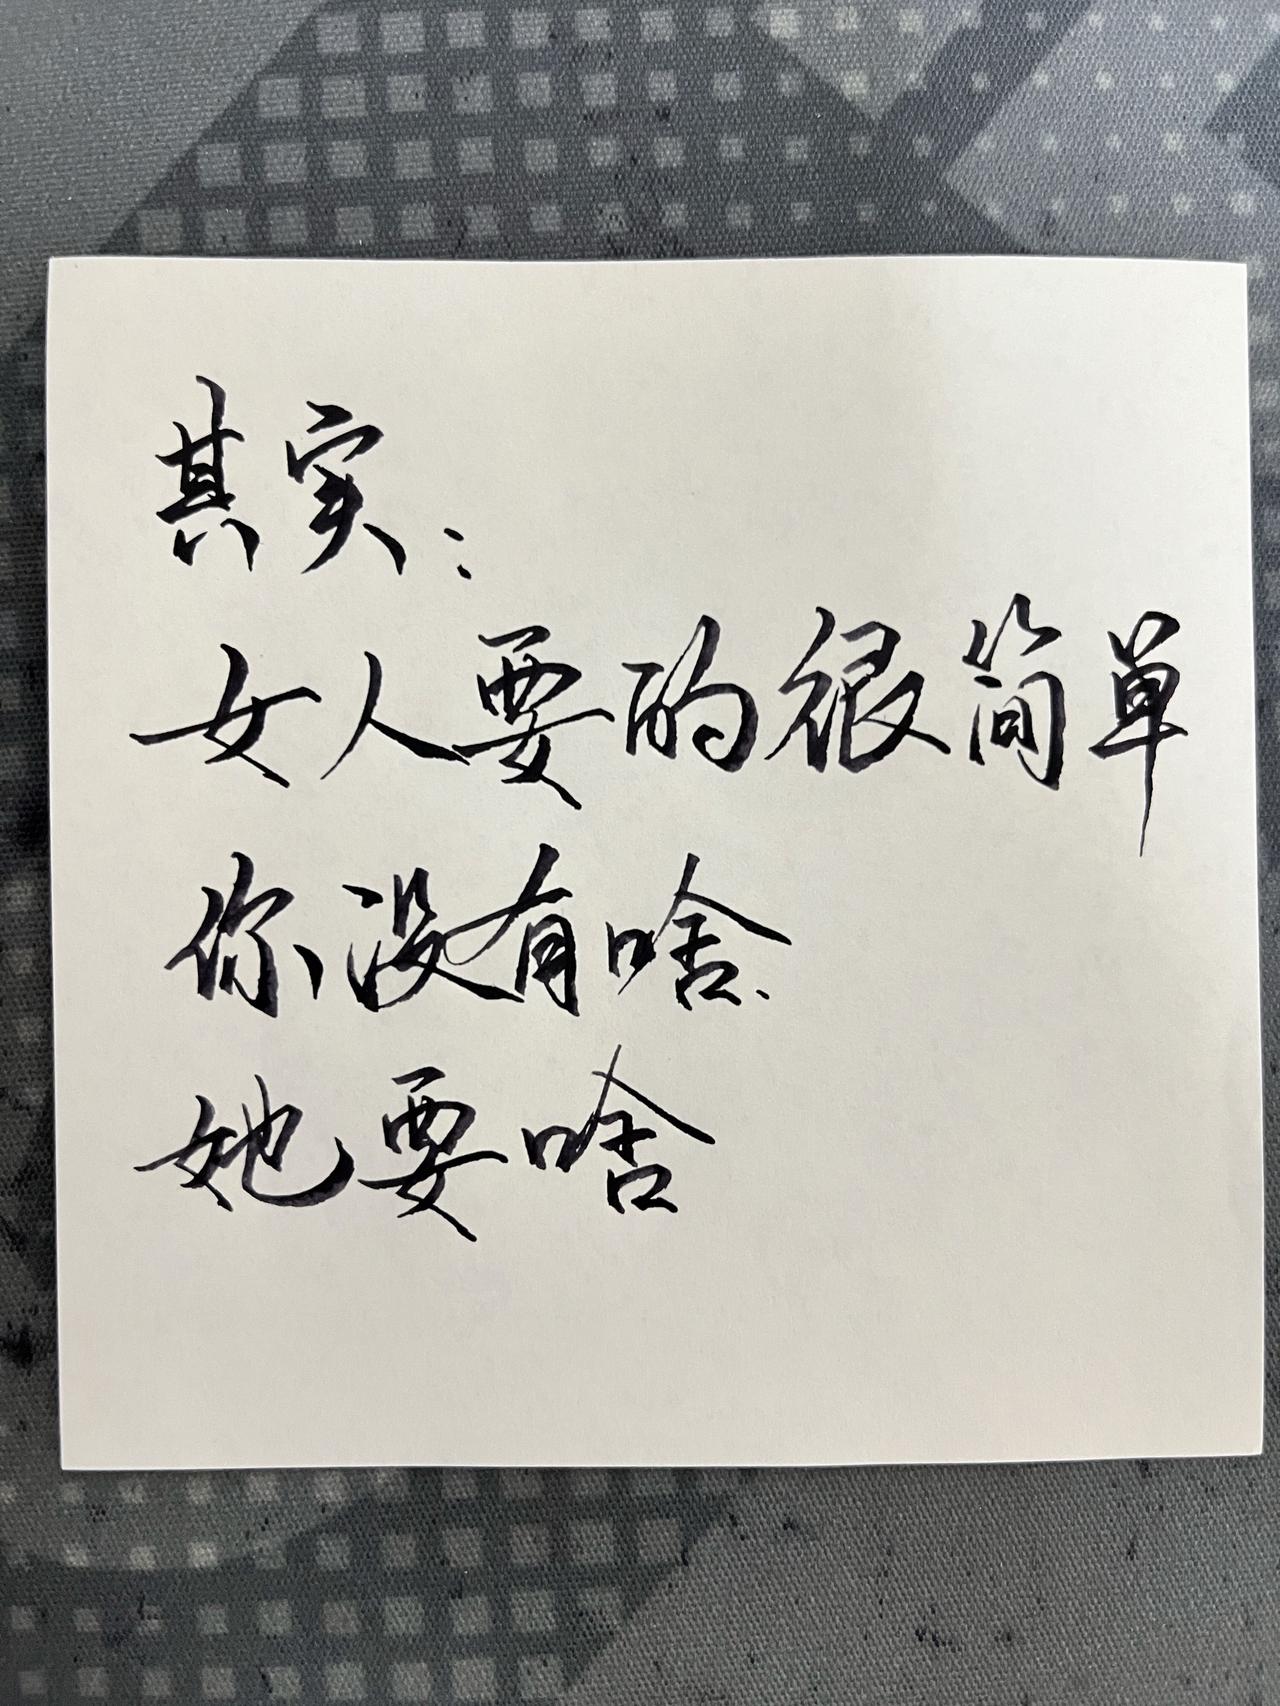 其实：
女人要的很简单
你没有啥、
她要啥